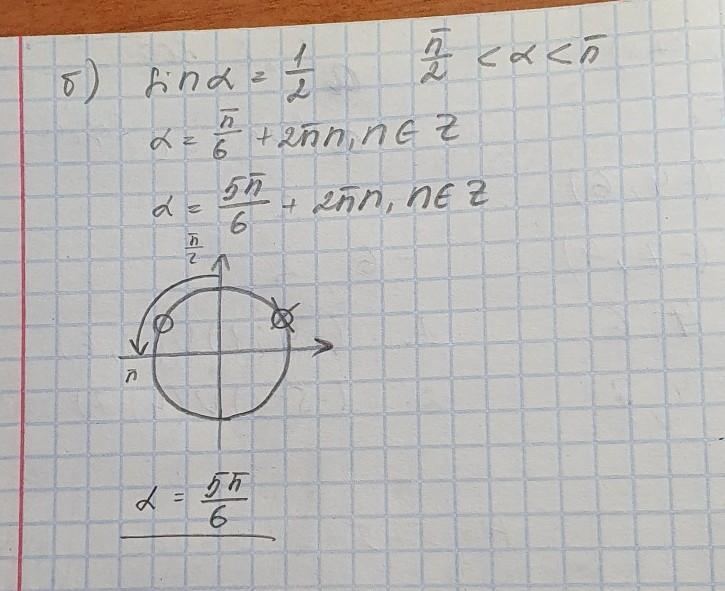 б) sin α = 1/2    π/2 < α < π
α = π/6 + 2πn, n ∈ Z
α = 5π/6 + 2πn, n ∈ Z
π/2
π
α = 5π/6